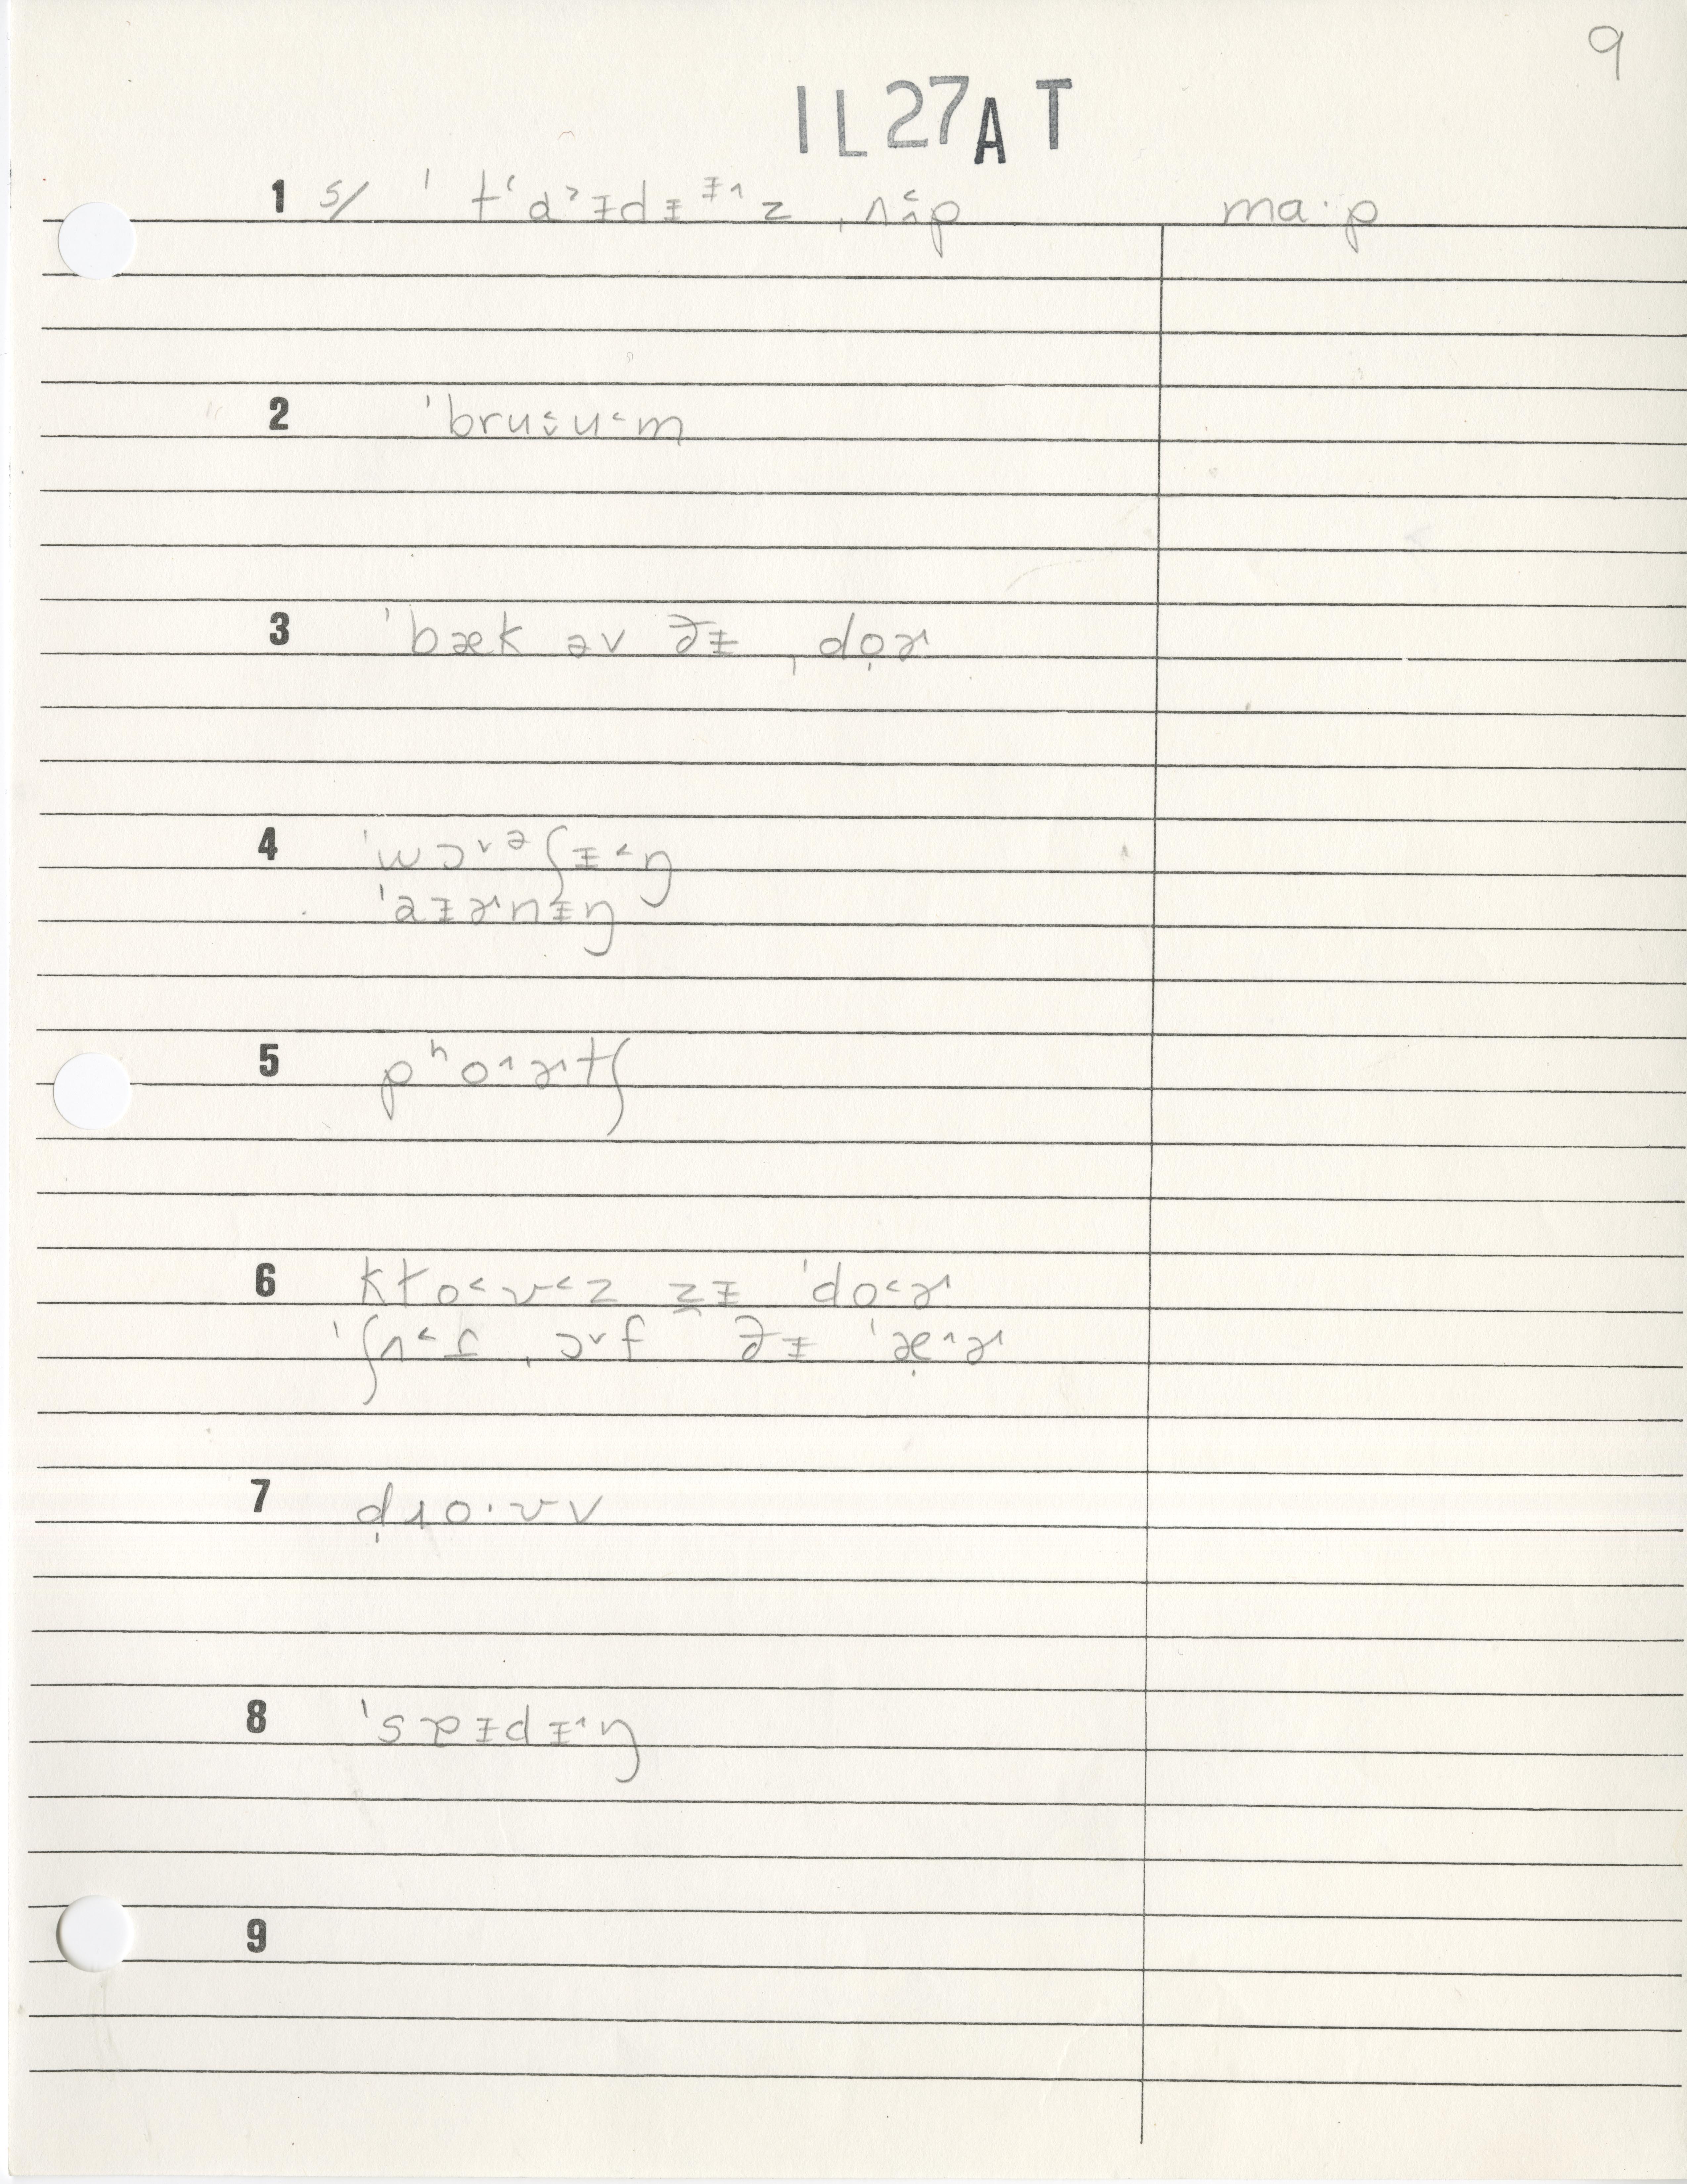 9
IL27AT
1 s/ ˈt˓ɑ˒ɪ̵dɪ̵ᵻ˄z ˌʌ˰p ma·p
2 ˈbru˰u˂m
3 ˈbæk əv ðɪ̵ ˌdọɚ
4 ˈwɔ˅ᵊʃɪ̵˂ŋ
ˈaɪ̵ɚnɪ̵ŋ
5 pʰo˄ɚtʃ
6 kɫo˂ʊ˂z z̬ɪ̵ ˈdo˂ɚ
ˈʃʌ˂t ˌɔ˅f ðɪ̵ ˈæ̣˄ɚ
7 ḍɹo·ʊv
8 ˈsɐɪ̵dɪ̵˄ŋ
9